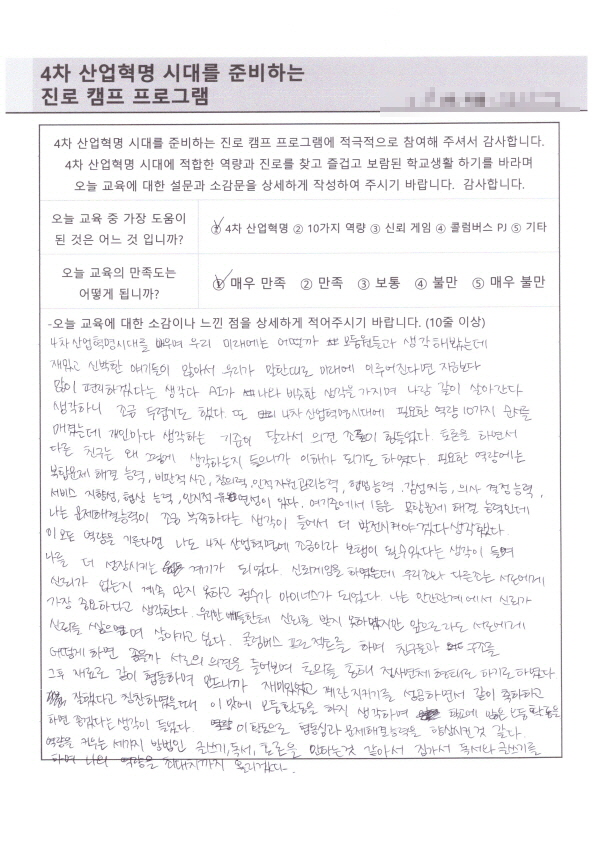 4차 산업혁명 시대를 준비하는
진로 캠프 프로그램
4차 산업혁명 시대를 준비하는 진로 캠프 프로그램에 적극적으로 참여해 주셔서 감사합니다.
4차 산업혁명 시대에 적합한 역량과 진로를 찾고 즐겁고 보람된 학교생활 하기를 바라며
오늘 교육에 대한 설문과 소감문을 상세하게 작성하여 주시기 바랍니다. 감사합니다.
오늘 교육 중 가장 도움이
된 것은 어느 것 입니까?
① 4차 산업혁명 ② 10가지 역량 ③ 신뢰 게임 ④ 콜럼버스 PJ ⑤ 기타
오늘 교육의 만족도는
어떻게 됩니까?
① 매우 만족 ② 만족 ③ 보통 ④ 불만 ⑤ 매우 불만
-오늘 교육에 대한 소감이나 느낀 점을 상세하게 적어주시기 바랍니다. (10줄 이상)
4차 산업혁명시대를 배우며 우리 미래에는 어떨까 모둠원들과 생각해봤는데
재밌고 신박한 얘기들이 많아서 우리가 말한대로 미래에 이루어진다면 지금보다
많이 편리하겠다는 생각다 AI가 나와 비슷한 생각을 가지며 나랑 같이 살아간다
생각하니 조금 두렵기도 했다. 또 4차 산업혁명시대에 필요한 역량 10가지 순위를
매겼는데 개인마다 생각하는 기준이 달라서 의견 조율이 힘들었다. 토론을 하면서
다른 친구는 왜 그렇게 생각하는지 들으니까 이해가 되기도 하였다. 필요한 역량에는
복합문제 해결 능력, 비판적 사고, 창의력, 인적자원관리능력, 협업능력, 감성지능, 의사 결정능력,
서비스 지향성, 협상 능력, 인지적 유연성이 있다. 여기중에서 1등은 복합문제 해결 능력인데
나는 문제해결능력이 조금 부족하다는 생각이 들어서 더 발전시켜야겠다 생각했다.
이 모든 역량을 기른다면 나도 4차 산업혁명에 조금이라 보탬이 될 수 있다는 생각이 들며
나를 더 성장시키는 계기가 되었다. 신뢰게임을 하였는데 우리조와 다른조는 서로에게
신뢰가 없는지 계속 믿지 못하고 점수가 마이너스가 되었다. 나는 인간관계에서 신뢰가
가장 중요하다고 생각한다. 우리반 애들한테 신뢰를 받지 못하였지만 앞으로라도 서로에게
신뢰를 쌓으며 살아가고 싶다. 콜럼버스 프로젝트를 하며 친구들과 구조를
어떻게 하면 좋을까 서로의 의견을 들어보며 토의를 통해 정사면체 형태로 하기로 하였다.
그후 재료로 같이 협동하며 만드니까 재미있었고 계란 지키기를 성공하면서 같이 축하하고
잘했다고 칭찬하였을때 이 맛에 모둠활동을 하지 생각하며 학교에 많은 모둠활동을
하면 좋겠다는 생각이 들었다. 이 활동으로 협동심과 문제해결능력을 향상시킨것 같다.
역량을 키우는 세가지 방법인 글쓰기, 독서, 토론을 안하는것 같아서 집가서 독서와 글쓰기를
하며 나의 역량을 최대치까지 올리겠다.